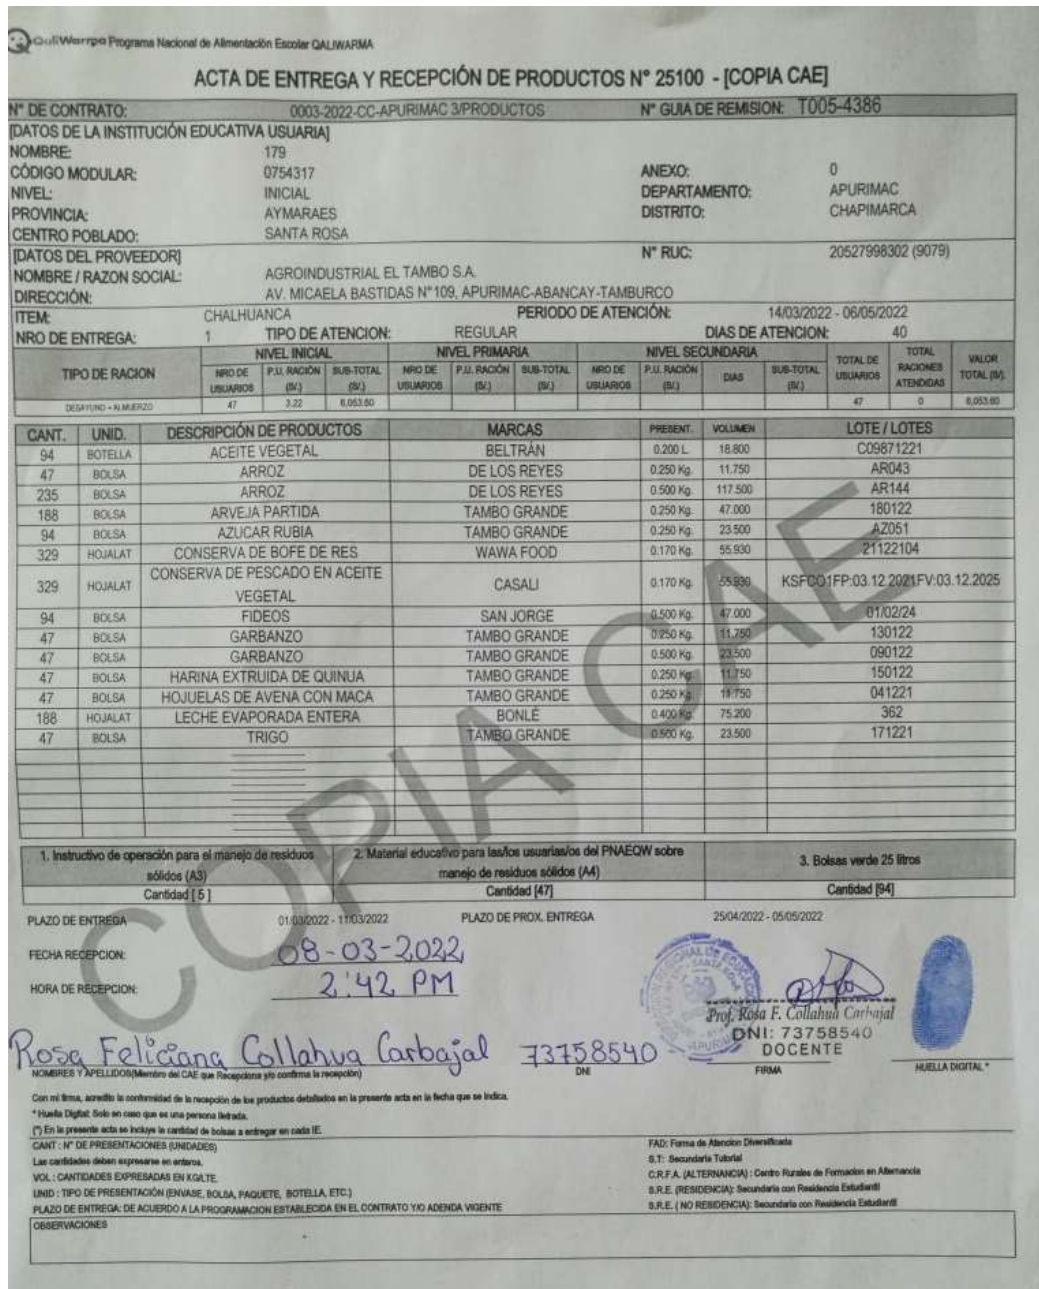 QaliWarma Programa Nacional de Alimentación Escolar QALIWARMA
ACTA DE ENTREGA Y RECEPCIÓN DE PRODUCTOS N° 25100 - [COPIA CAE]
N° DE CONTRATO: 0003-2022-CC-APURIMAC 3/PRODUCTOS N° GUIA DE REMISION: T005-4386
[DATOS DE LA INSTITUCIÓN EDUCATIVA USUARIA]
NOMBRE: 179
CÓDIGO MODULAR: 0754317 ANEXO: 0
NIVEL: INICIAL DEPARTAMENTO: APURIMAC
PROVINCIA: AYMARAES DISTRITO: CHAPIMARCA
CENTRO POBLADO: SANTA ROSA
[DATOS DEL PROVEEDOR] N° RUC: 20527998302 (9079)
NOMBRE / RAZON SOCIAL: AGROINDUSTRIAL EL TAMBO S.A.
DIRECCIÓN: AV. MICAELA BASTIDAS N°109, APURIMAC-ABANCAY-TAMBURCO
ITEM: CHALHUANCA PERIODO DE ATENCIÓN: 14/03/2022 - 06/05/2022
NRO DE ENTREGA: 1 TIPO DE ATENCION: REGULAR DIAS DE ATENCION: 40
TIPO DE RACION NIVEL INICIAL NIVEL PRIMARIA NIVEL SECUNDARIA TOTAL DE USUARIOS TOTAL RACIONES ATENDIDAS VALOR TOTAL (S/.)
NRO DE USUARIOS P.U. RACIÓN (S/.) SUB-TOTAL (S/.) NRO DE USUARIOS P.U. RACIÓN (S/.) SUB-TOTAL (S/.) NRO DE USUARIOS P.U. RACIÓN (S/.) DIAS SUB-TOTAL (S/.)
DESAYUNO + ALMUERZO 47 3.22 6,053.60 47 0 6,053.60
CANT. UNID. DESCRIPCIÓN DE PRODUCTOS MARCAS PRESENT. VOLUMEN LOTE / LOTES
94 BOTELLA ACEITE VEGETAL BELTRÁN 0.200 L. 18.800 C09871221
47 BOLSA ARROZ DE LOS REYES 0.250 Kg. 11.750 AR043
235 BOLSA ARROZ DE LOS REYES 0.500 Kg. 117.500 AR144
188 BOLSA ARVEJA PARTIDA TAMBO GRANDE 0.250 Kg. 47.000 180122
94 BOLSA AZUCAR RUBIA TAMBO GRANDE 0.250 Kg. 23.500 AZ051
329 HOJALAT CONSERVA DE BOFE DE RES WAWA FOOD 0.170 Kg. 55.930 21122104
329 HOJALAT CONSERVA DE PESCADO EN ACEITE VEGETAL CASALI 0.170 Kg. 55.930 KSFCO1FP:03.12.2021FV:03.12.2025
94 BOLSA FIDEOS SAN JORGE 0.500 Kg. 47.000 01/02/24
47 BOLSA GARBANZO TAMBO GRANDE 0.250 Kg. 11.750 130122
47 BOLSA GARBANZO TAMBO GRANDE 0.500 Kg. 23.500 090122
47 BOLSA HARINA EXTRUIDA DE QUINUA TAMBO GRANDE 0.250 Kg. 11.750 150122
47 BOLSA HOJUELAS DE AVENA CON MACA TAMBO GRANDE 0.250 Kg. 11.750 041221
188 HOJALAT LECHE EVAPORADA ENTERA BONLÉ 0.400 Kg. 75.200 362
47 BOLSA TRIGO TAMBO GRANDE 0.500 Kg. 23.500 171221
COPIA CAE
1. Instructivo de operación para el manejo de residuos sólidos (A3) 2. Material educativo para las/los usuarias/os del PNAEQW sobre manejo de residuos sólidos (A4) 3. Bolsas verde 25 litros
Cantidad [ 5 ] Cantidad [47] Cantidad [94]
PLAZO DE ENTREGA 01/03/2022 - 11/03/2022 PLAZO DE PROX. ENTREGA 25/04/2022 - 05/05/2022
FECHA RECEPCION: 08-03-2022
HORA DE RECEPCION: 2:42 PM
Prof. Rosa F. Collahua Carbajal
DNI: 73758540
DOCENTE
Rosa Feliciana Collahua Carbajal 73758540
NOMBRES Y APELLIDOS(Miembro del CAE que Recepciona y/o confirma la recepción) DNI FIRMA HUELLA DIGITAL *
Con mi firma, acredito la conformidad de la recepción de los productos detallados en la presente acta en la fecha que se indica.
* Huella Digital: Solo en caso que es una persona iletrada.
(*) En la presente acta se incluye la cantidad de bolsas a entregar en cada IE.
CANT : N° DE PRESENTACIONES (UNIDADES) FAD: Forma de Atencion Diversificada
Las cantidades deben expresarse en enteros. S.T: Secundaria Tutorial
VOL : CANTIDADES EXPRESADAS EN KG/LTE. C.R.F.A. (ALTERNANCIA) : Centro Rurales de Formacion en Alternancia
UNID : TIPO DE PRESENTACIÓN (ENVASE, BOLSA, PAQUETE, BOTELLA, ETC.) S.R.E. (RESIDENCIA): Secundaria con Residencia Estudiantil
PLAZO DE ENTREGA: DE ACUERDO A LA PROGRAMACION ESTABLECIDA EN EL CONTRATO Y/O ADENDA VIGENTE S.R.E. ( NO RESIDENCIA): Secundaria con Residencia Estudiantil
OBSERVACIONES